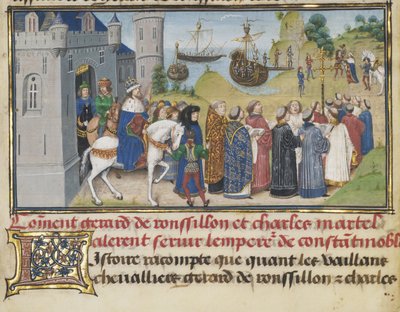 Coment gerard de roussillon et charles martel
alerent seruir lempere.ʳ de constātinoble
Istoire racompte que quant les vaillans
cheualliers gerard de roussillon & charles